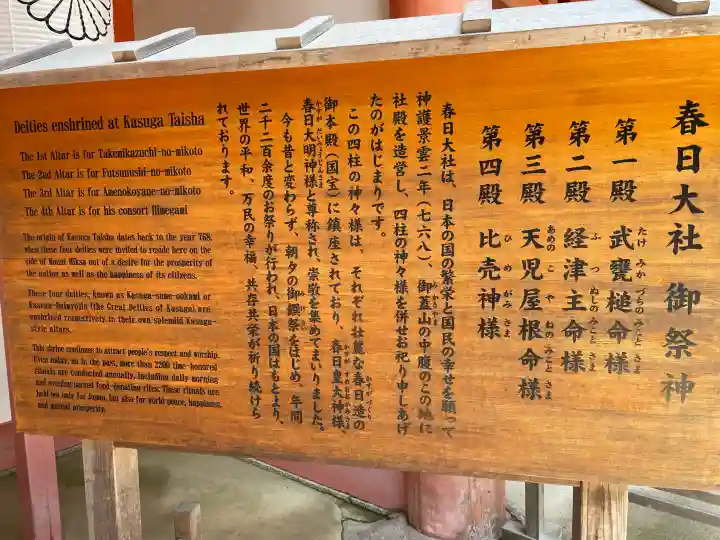 春日大社 御祭神
第一殿 武甕槌命様
たけみかづちのみことさま
第二殿 経津主命様
ふつぬしのみことさま
第三殿 天児屋根命様
あめのこやねのみことさま
第四殿 比売神様
ひめがみさま
春日大社は、日本の国の繁栄と国民の幸せを願って
神護景雲二年(七六八)、御蓋山の中腹のこの地に
みかさやま
社殿を造営し、四柱の神々様を併せお祀り申しあげ
たのがはじまりです。
この四柱の神々様は、それぞれ壮麗な春日造の
かすがづくり
御本殿(国宝)に鎮座されており、春日皇大神様、
かすがすめおおかみさま
春日大明神様と尊称され、崇敬を集めてまいりました。
かすがだいみょうじんさま
今も昔と変わらず、朝夕の御饌祭をはじめ、年間
二千二百余度のお祭りが行われ、日本の国はもとより、
世界の平和、万民の幸福、共存共栄が祈り続けら
れております。
Deities enshrined at Kasuga Taisha
The 1st Altar is for Takemikazuchi-no-mikoto
The 2nd Altar is for Futsunushi-no-mikoto
The 3rd Altar is for Amenokoyane-no-mikoto
The 4th Altar is for his consort Himegami
The origin of Kasuga Taisha dates back to the year 768,
when these four deities were invited to reside here on the
side of Mount Miksa out of a desire for the prosperity of
the nation as well as the happiness of its citizens.
These four deities, known as Kasuga-sume-ookami or
Kasuga-Daimyojin (the Great Deities of Kasuga), are
enshrined respectively in their own splendid Kasuga-
style altars.
This shrine continues to attract people's respect and worship.
Even today, as in the past, more than 2200 time-honored
rituals are conducted annually, including daily morning
and evening sacred food-donating rites. These rituals are
held not only for Japan, but also for world peace, happiness,
and mutual prosperity.